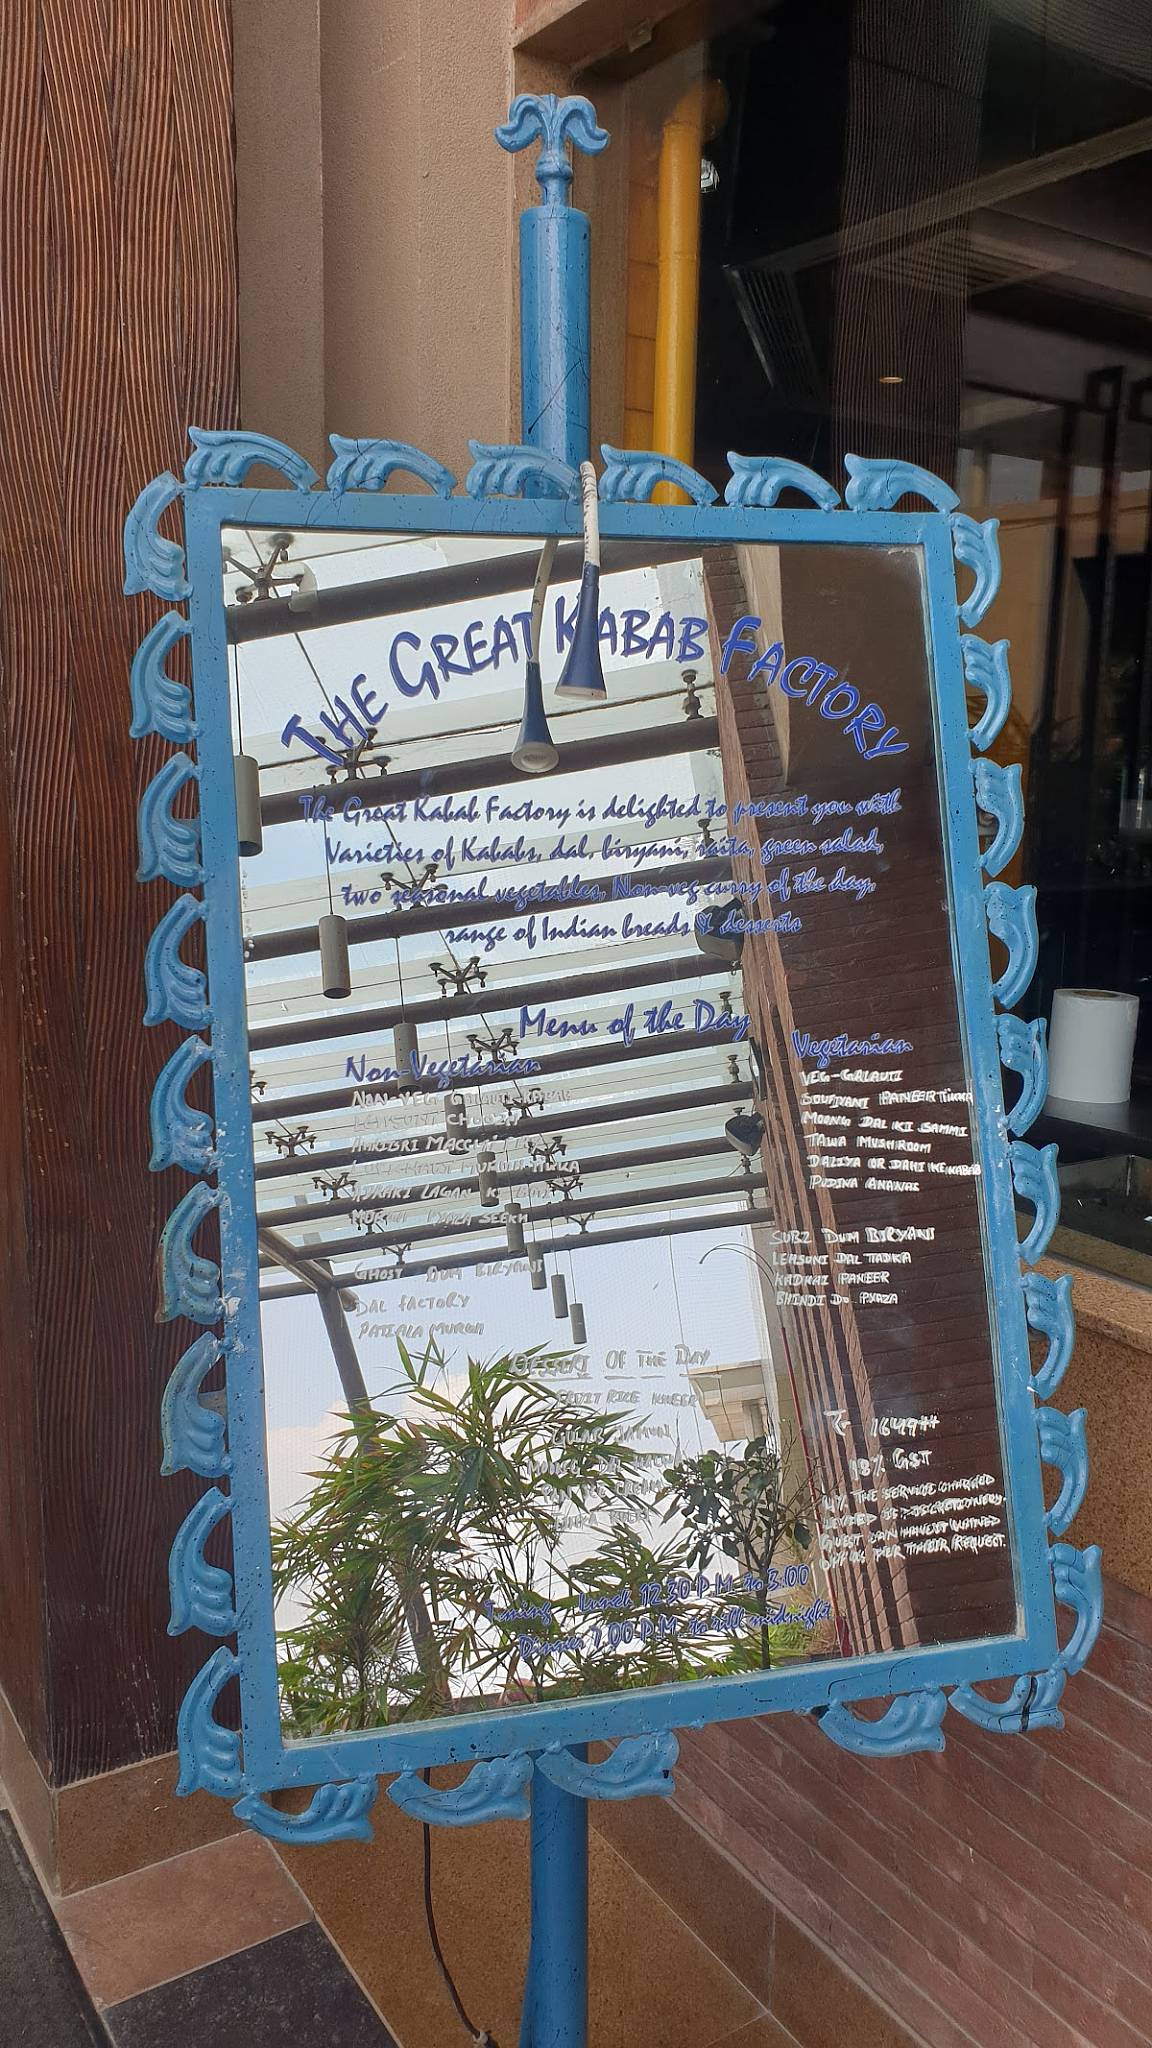 THE GREAT KABAB FACTORY
The Great Kabab Factory is delighted to present you with
Varieties of Kababs, dal, biryani, raita, green salad,
two seasonal vegetables, Non-veg curry of the day,
range of Indian breads & desserts
Menu of the Day
Non-Vegetarian
NON-VEG GALAUTI KABAB
LEHSUNI
AMRITSRI MACCHI
MURGH TIKKA
LAGAN KI
MURGH PYAZA SEEKH
GHOST DUM BIRYANI
DAL FACTORY
PATIALA MURGH
Vegetarian
VEG-GALAUTI
SOUFIYANI PANEER TIKKA
MOONG DAL KI SAMMI
TAWA MUSHROOM
DALIYA OR DAHI KE KABAB
PUDINA ANANAS
SUBZ DUM BIRYANI
LEHSUNI DAL TADKA
KADHAI PANEER
BHINDI DO PYAZA
DESSERT OF THE DAY
FRUIT RICE KHEER
GULAB JAMUN
MOONG DAL HALWA
ICE CREAM
KULFI
1649++
18% GST
THE SERVICE CHARGED
LEVIED IS DISCRETIONERY.
GUEST CAN HAVE IT WAIVED
OFF AS PER THEIR REQUEST.
Timing Lunch 12.30 P.M. to 3.00
Dinner 7.00 P.M. to till midnight